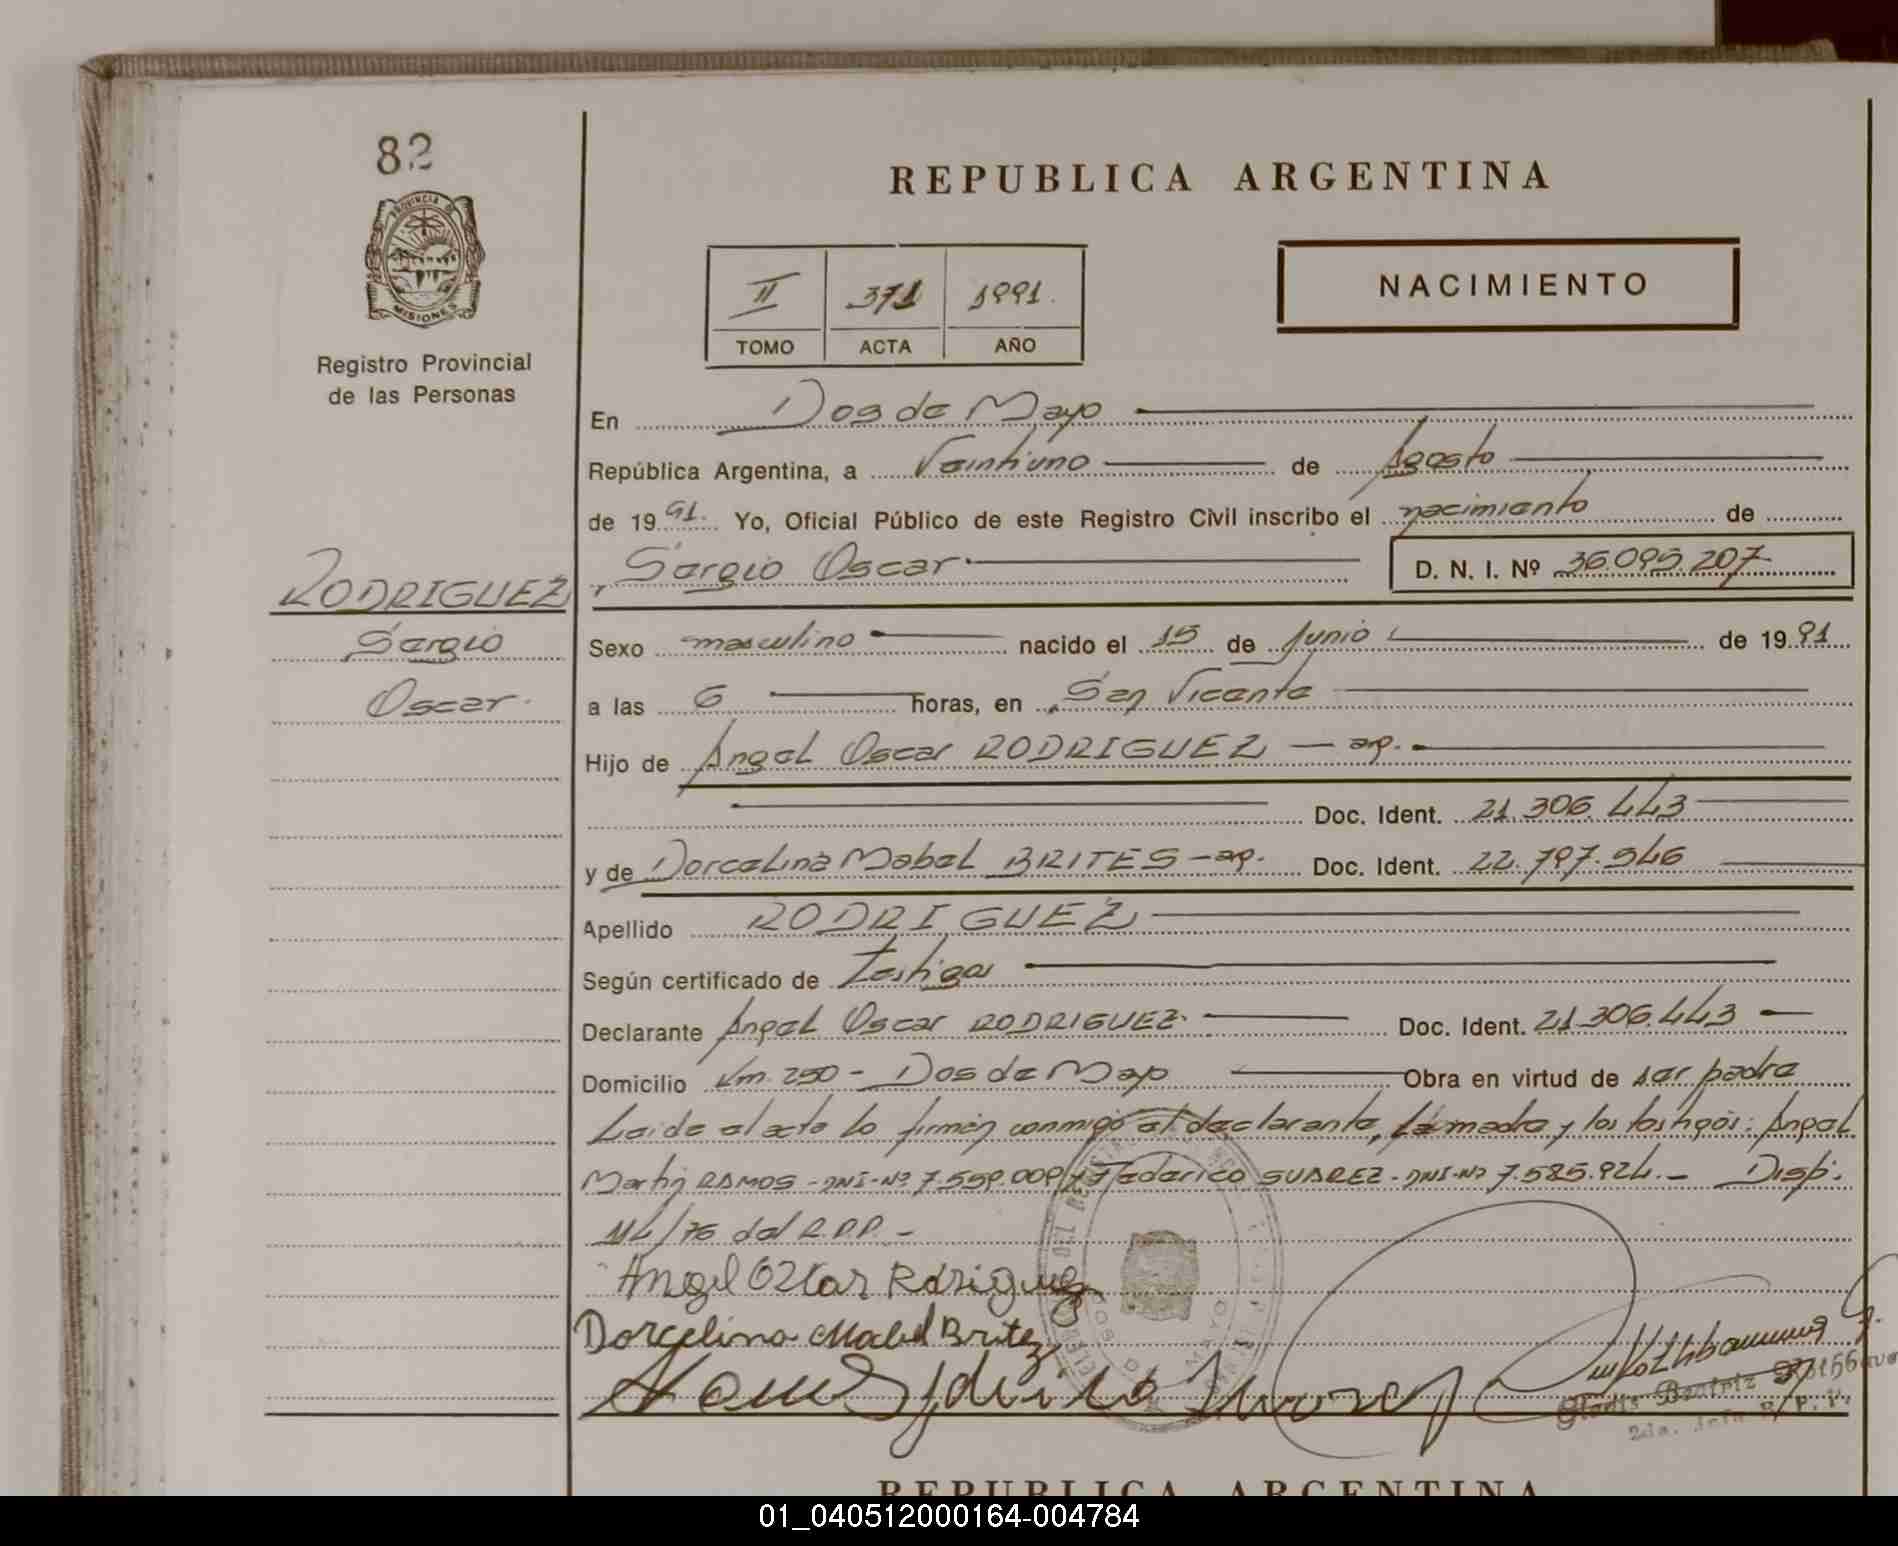 82
PROVINCIA DE
MISIONES
Registro Provincial
de las Personas
RODRIGUEZ
Sergio
Oscar.
REPUBLICA ARGENTINA
II 371 1991.
TOMO ACTA AÑO
NACIMIENTO
En Dos de Mayo
República Argentina, a Veintiuno de Agosto
de 1991. Yo, Oficial Público de este Registro Civil inscribo el nacimiento de
Sergio Oscar D. N. I. Nº 36.095.207
Sexo masculino nacido el 15 de Junio de 1991
a las 6 horas, en San Vicente
Hijo de Angel Oscar RODRIGUEZ — ap.
Doc. Ident. 21.306.443
y de Dorcelina Mabel BRITES - ap. Doc. Ident. 22.797.546
Apellido RODRIGUEZ
Según certificado de testigos
Declarante Angel Oscar RODRIGUEZ. Doc. Ident. 21.306.443
Domicilio Km. 250 - Dos de Mayo Obra en virtud de ser padre
Leída el acta lo firman conmigo el declarante, la madre y los testigos: Angel
Martin RAMOS - DNI-Nº 7.559.009 y Federico SUAREZ - DNI-Nº 7.585.924.- Disp.
14/76 del R.P.P.-
Angel Oscar Rodriguez
Dorcelina Mabel Britez
Gladis Beatriz
2da. Jefe R. P. P.
REPUBLICA ARGENTINA
01_040512000164-004784